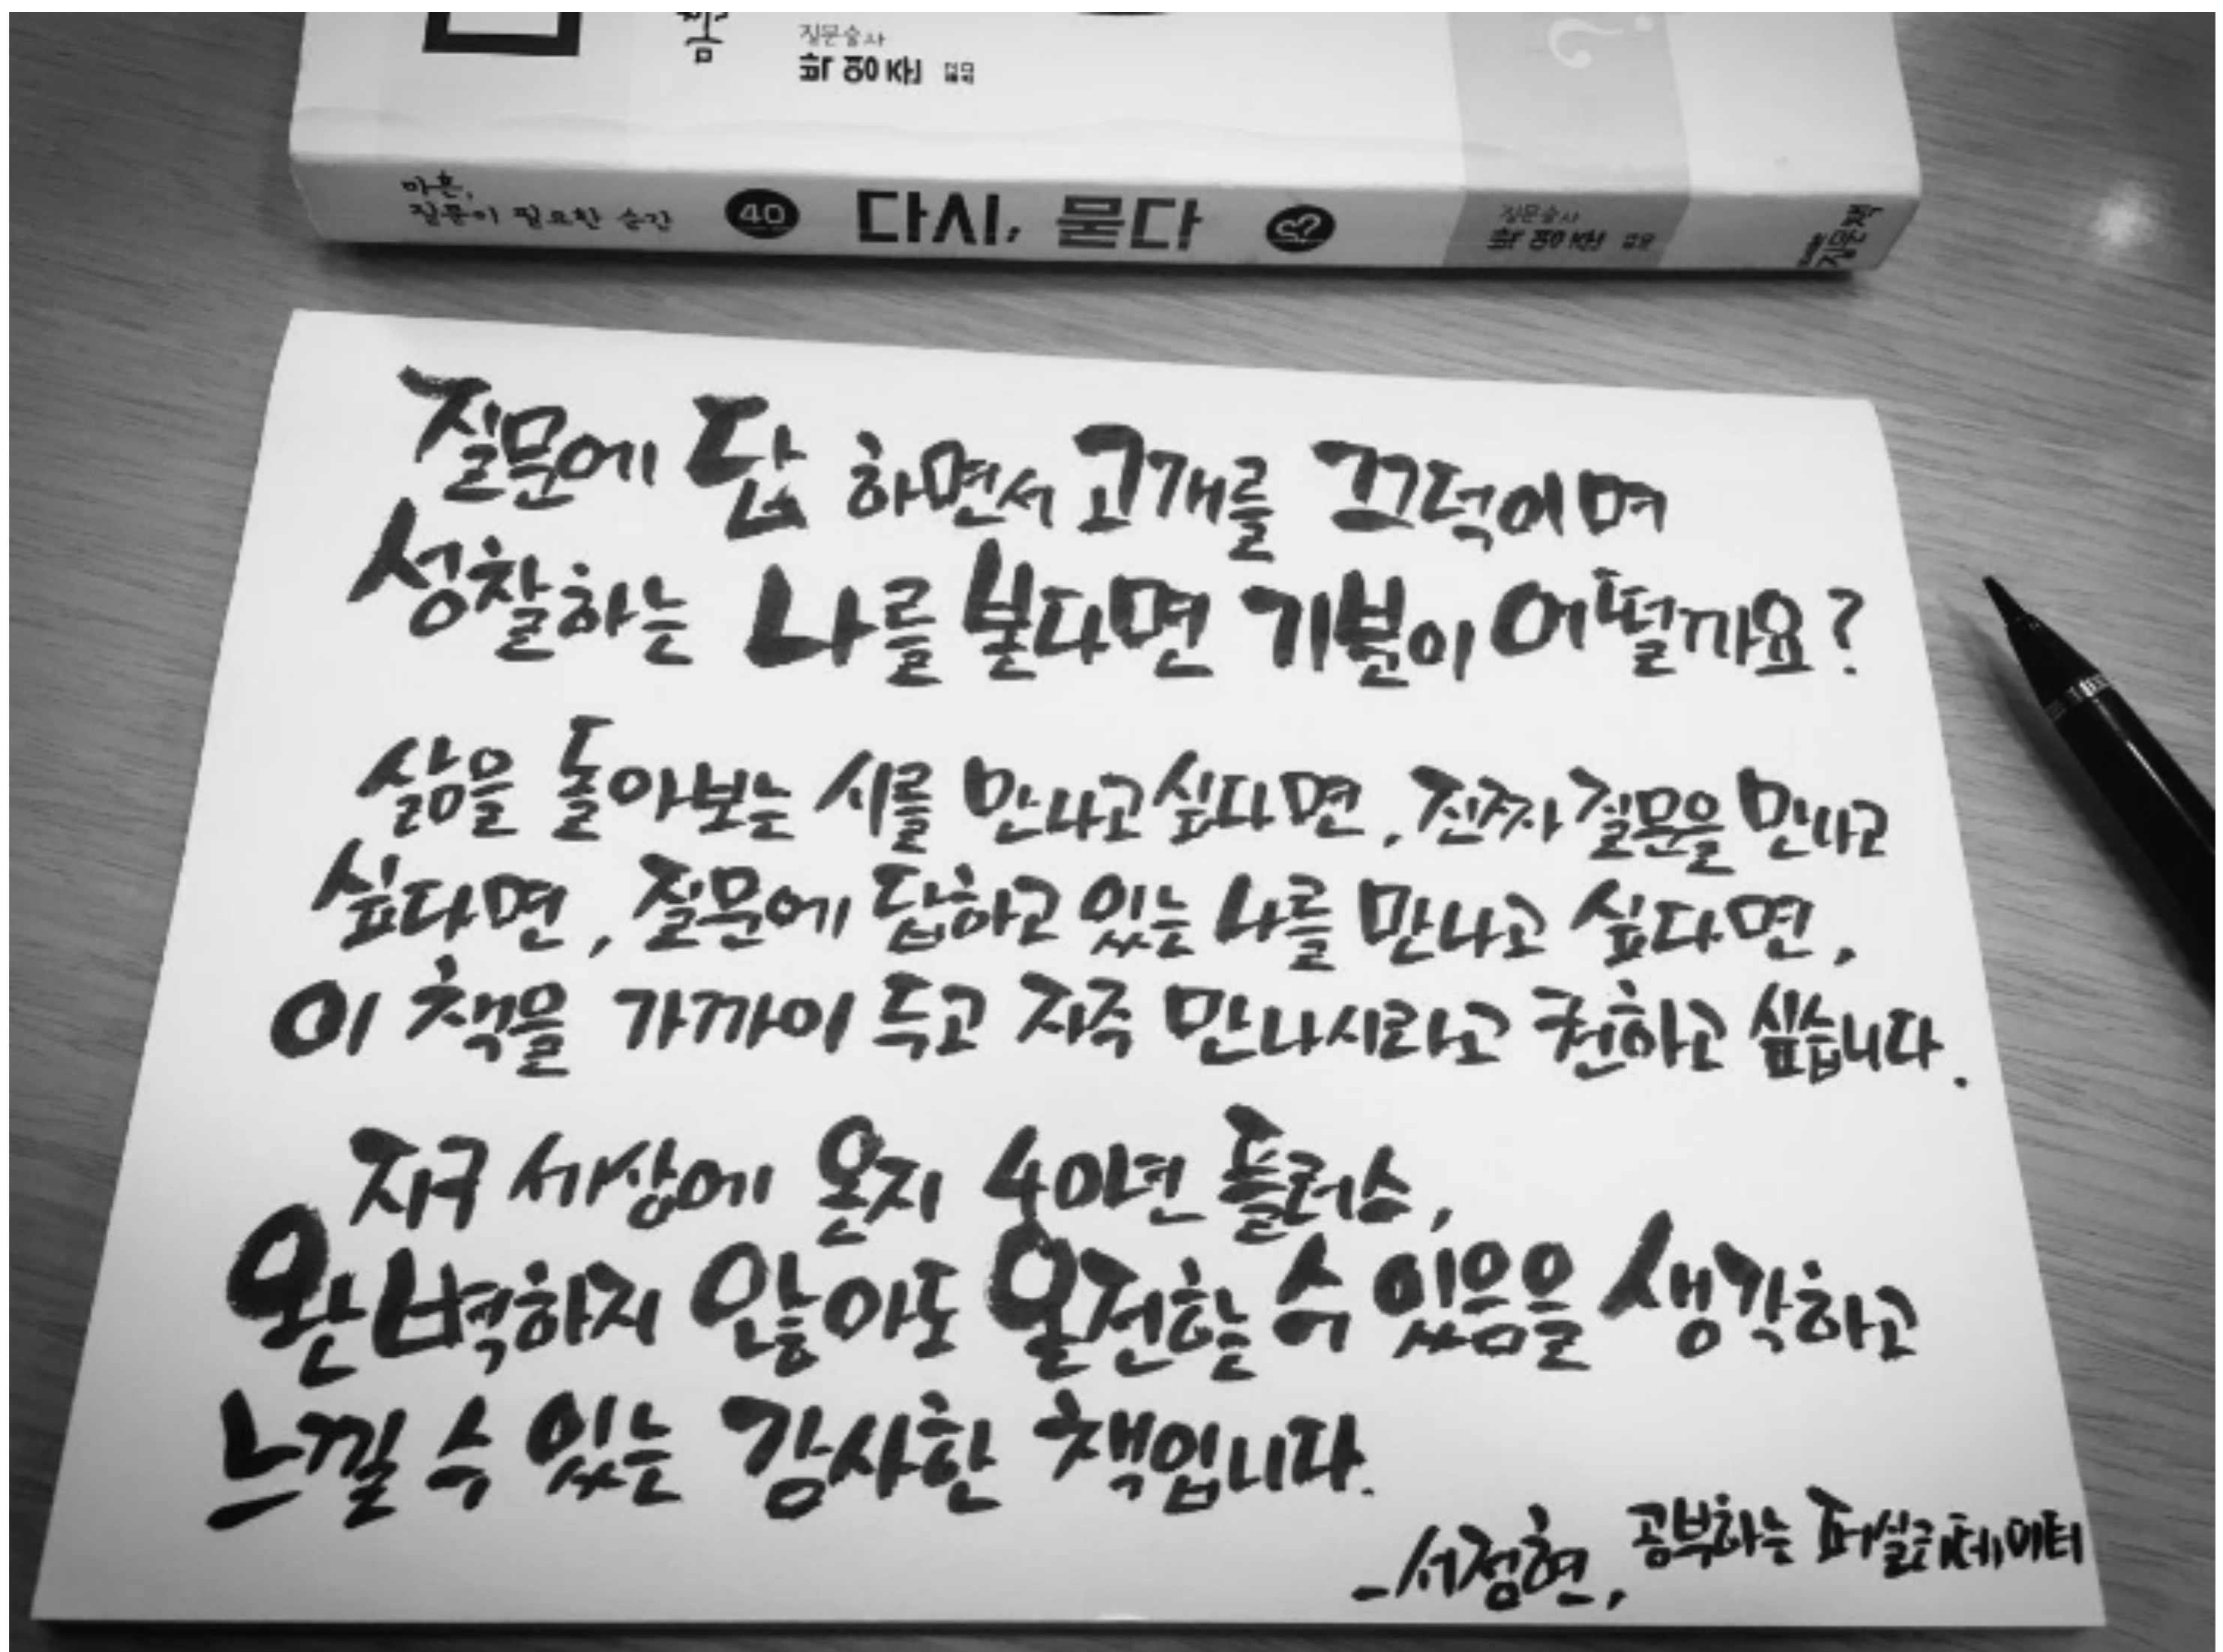 질문술사
박영준 지음
마흔,
질문이 필요한 순간
40
다시, 묻다
질문술사
박영준 지음
질문책
질문에 답 하면서 고개를 끄덕이며
성찰하는 나를 본다면 기분이 어떨까요?
삶을 돌아보는 시를 만나고싶다면, 진짜 질문을 만나고
싶다면, 질문에 답하고 있는 나를 만나고 싶다면,
이 책을 가까이 두고 자주 만나시라고 권하고 싶습니다.
지구 세상에 온지 40년 플러스,
완벽하지 않아도 온전할 수 있음을 생각하고
느낄 수 있는 감사한 책입니다.
-서정현, 공부하는 퍼실리테이터